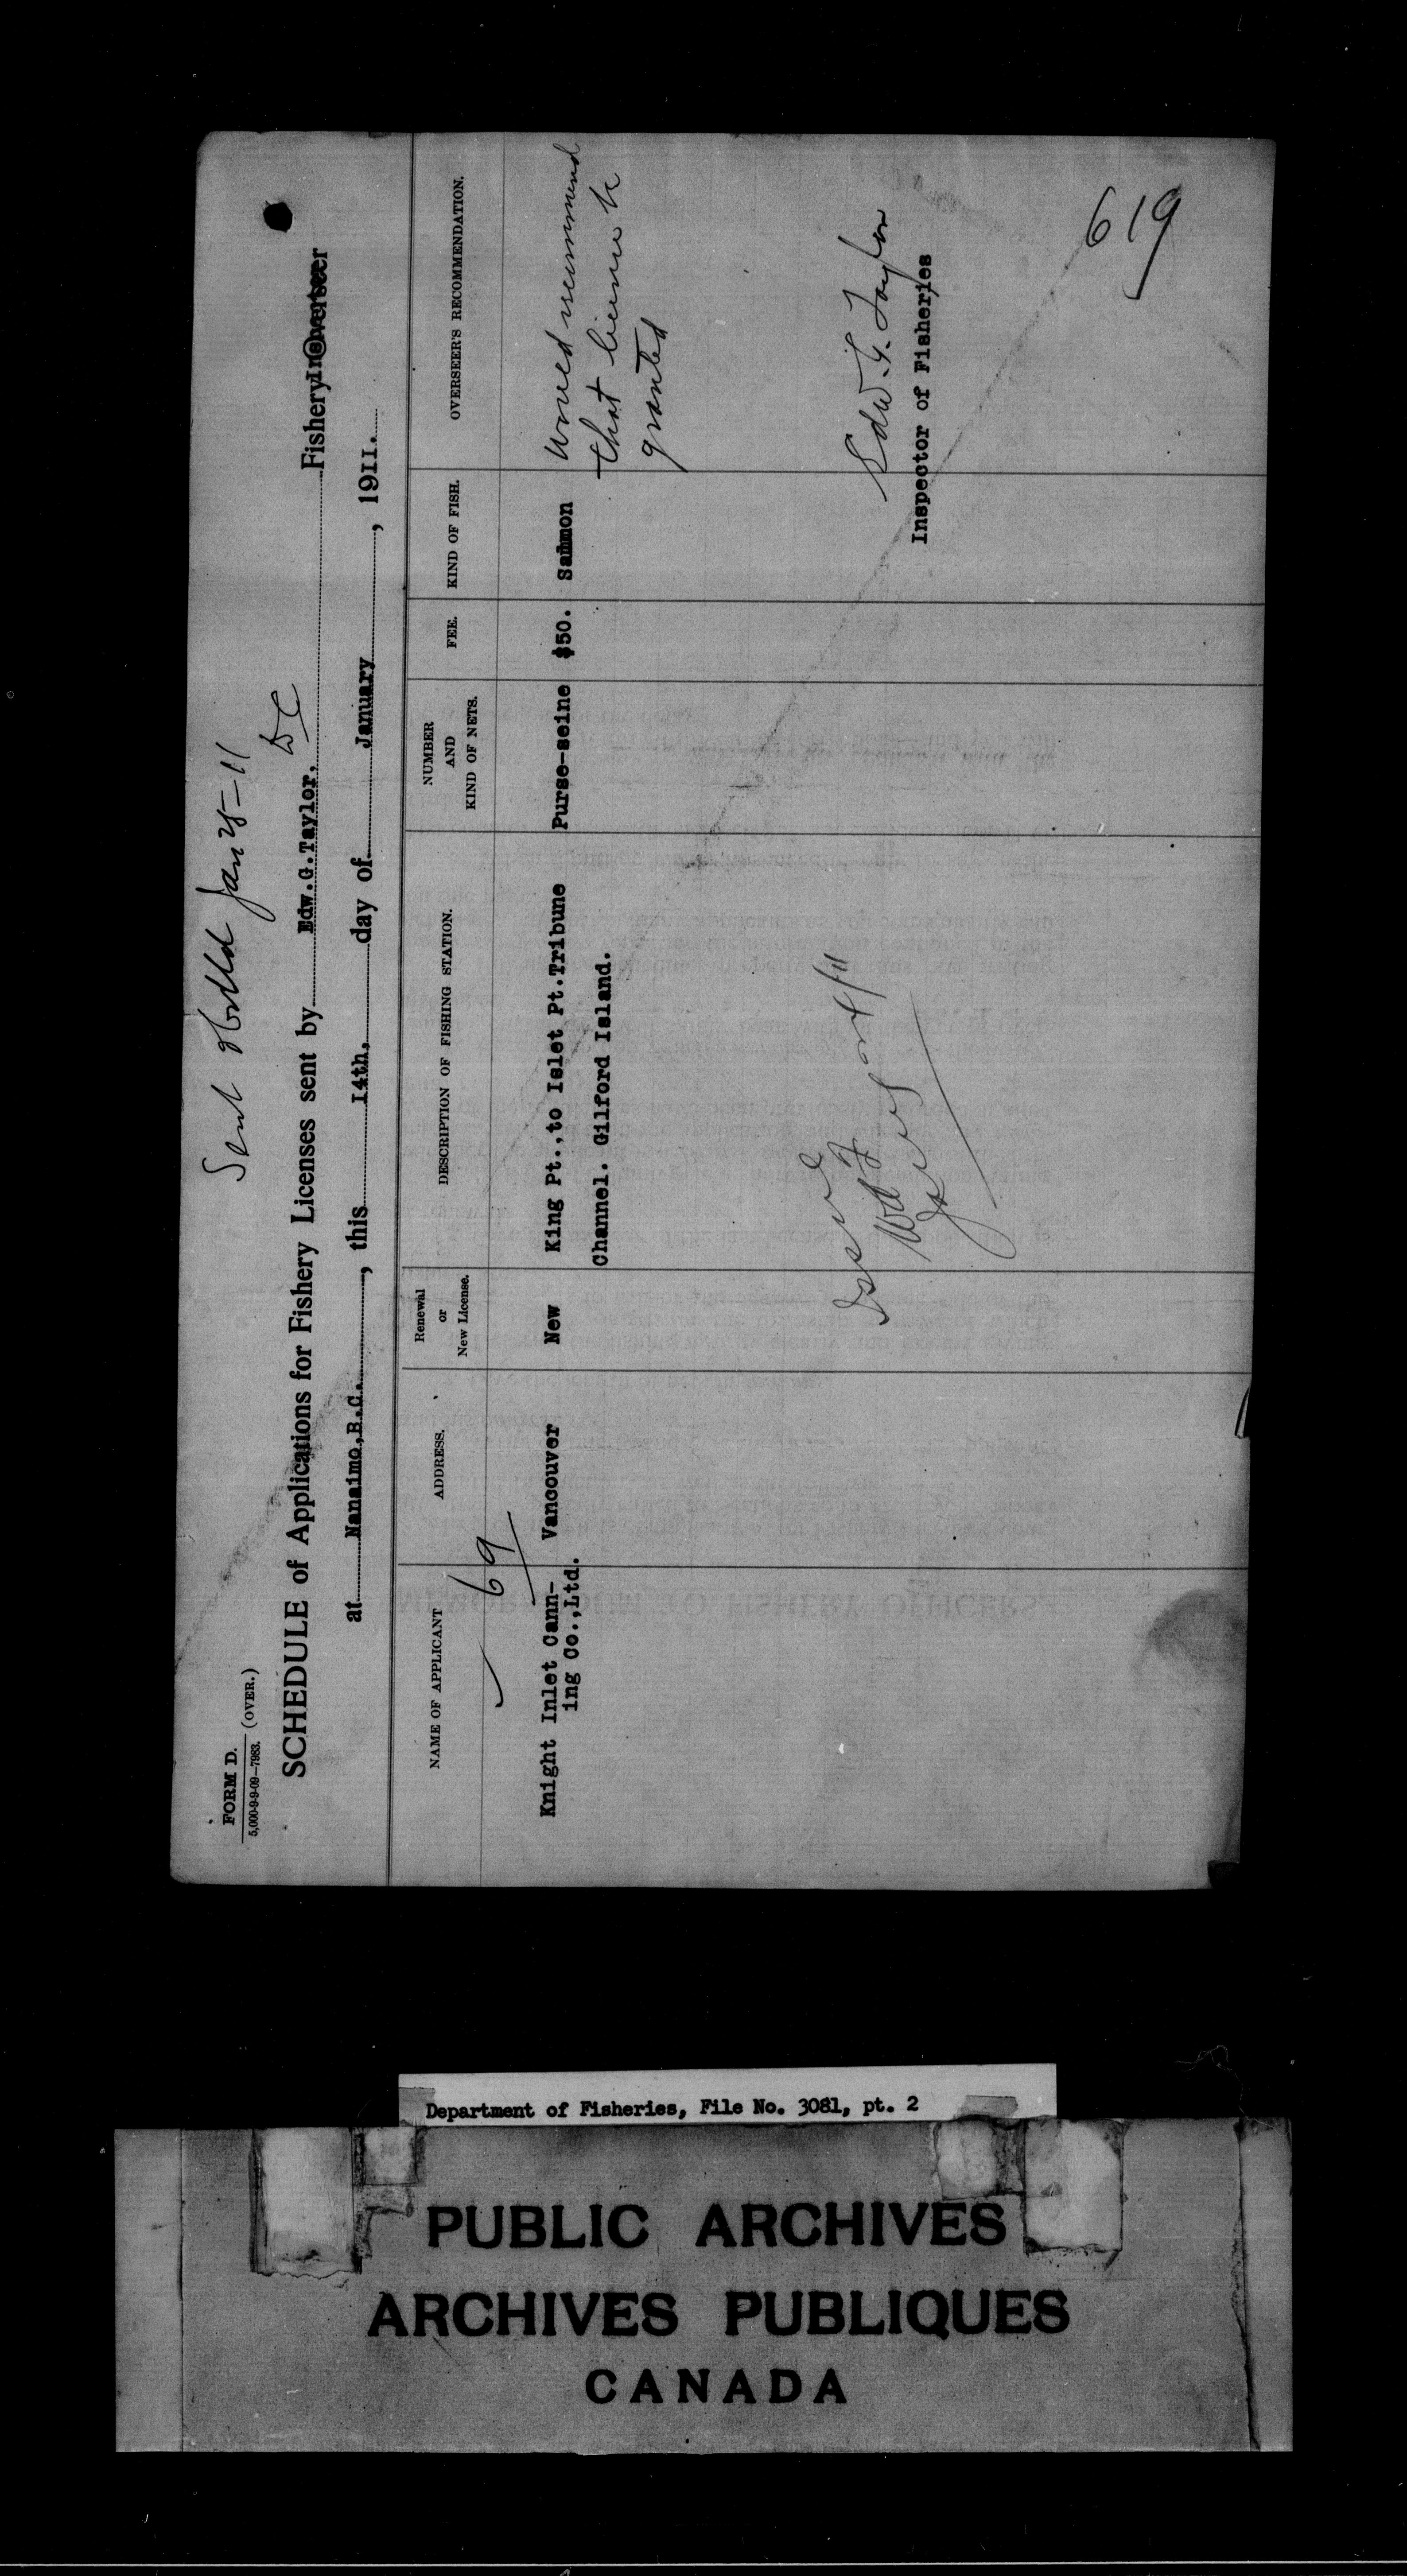 Sent Jan 25-11
FORM D.
5,000-9-9-09—7983. (OVER.)
SCHEDULE of Applications for Fishery Licenses sent by Edw.G.Taylor, Fishery
at Nanaimo,B.C., this 14th, day of January, 1911.
NAME OF APPLICANT ADDRESS. Renewal or New License. DESCRIPTION OF FISHING STATION. NUMBER AND KIND OF NETS. FEE. KIND OF FISH. OVERSEER'S RECOMMENDATION.
69
Knight Inlet Cann- Vancouver New King Pt.,to Islet Pt.Tribune Purse-seine $50. Salmon Would recommend
ing Co.,Ltd. Channel. Gilford Island. that license be
granted
Edw. G. Taylor
Inspector of Fisheries
619
Department of Fisheries, File No. 3081, pt. 2
PUBLIC ARCHIVES
ARCHIVES PUBLIQUES
CANADA